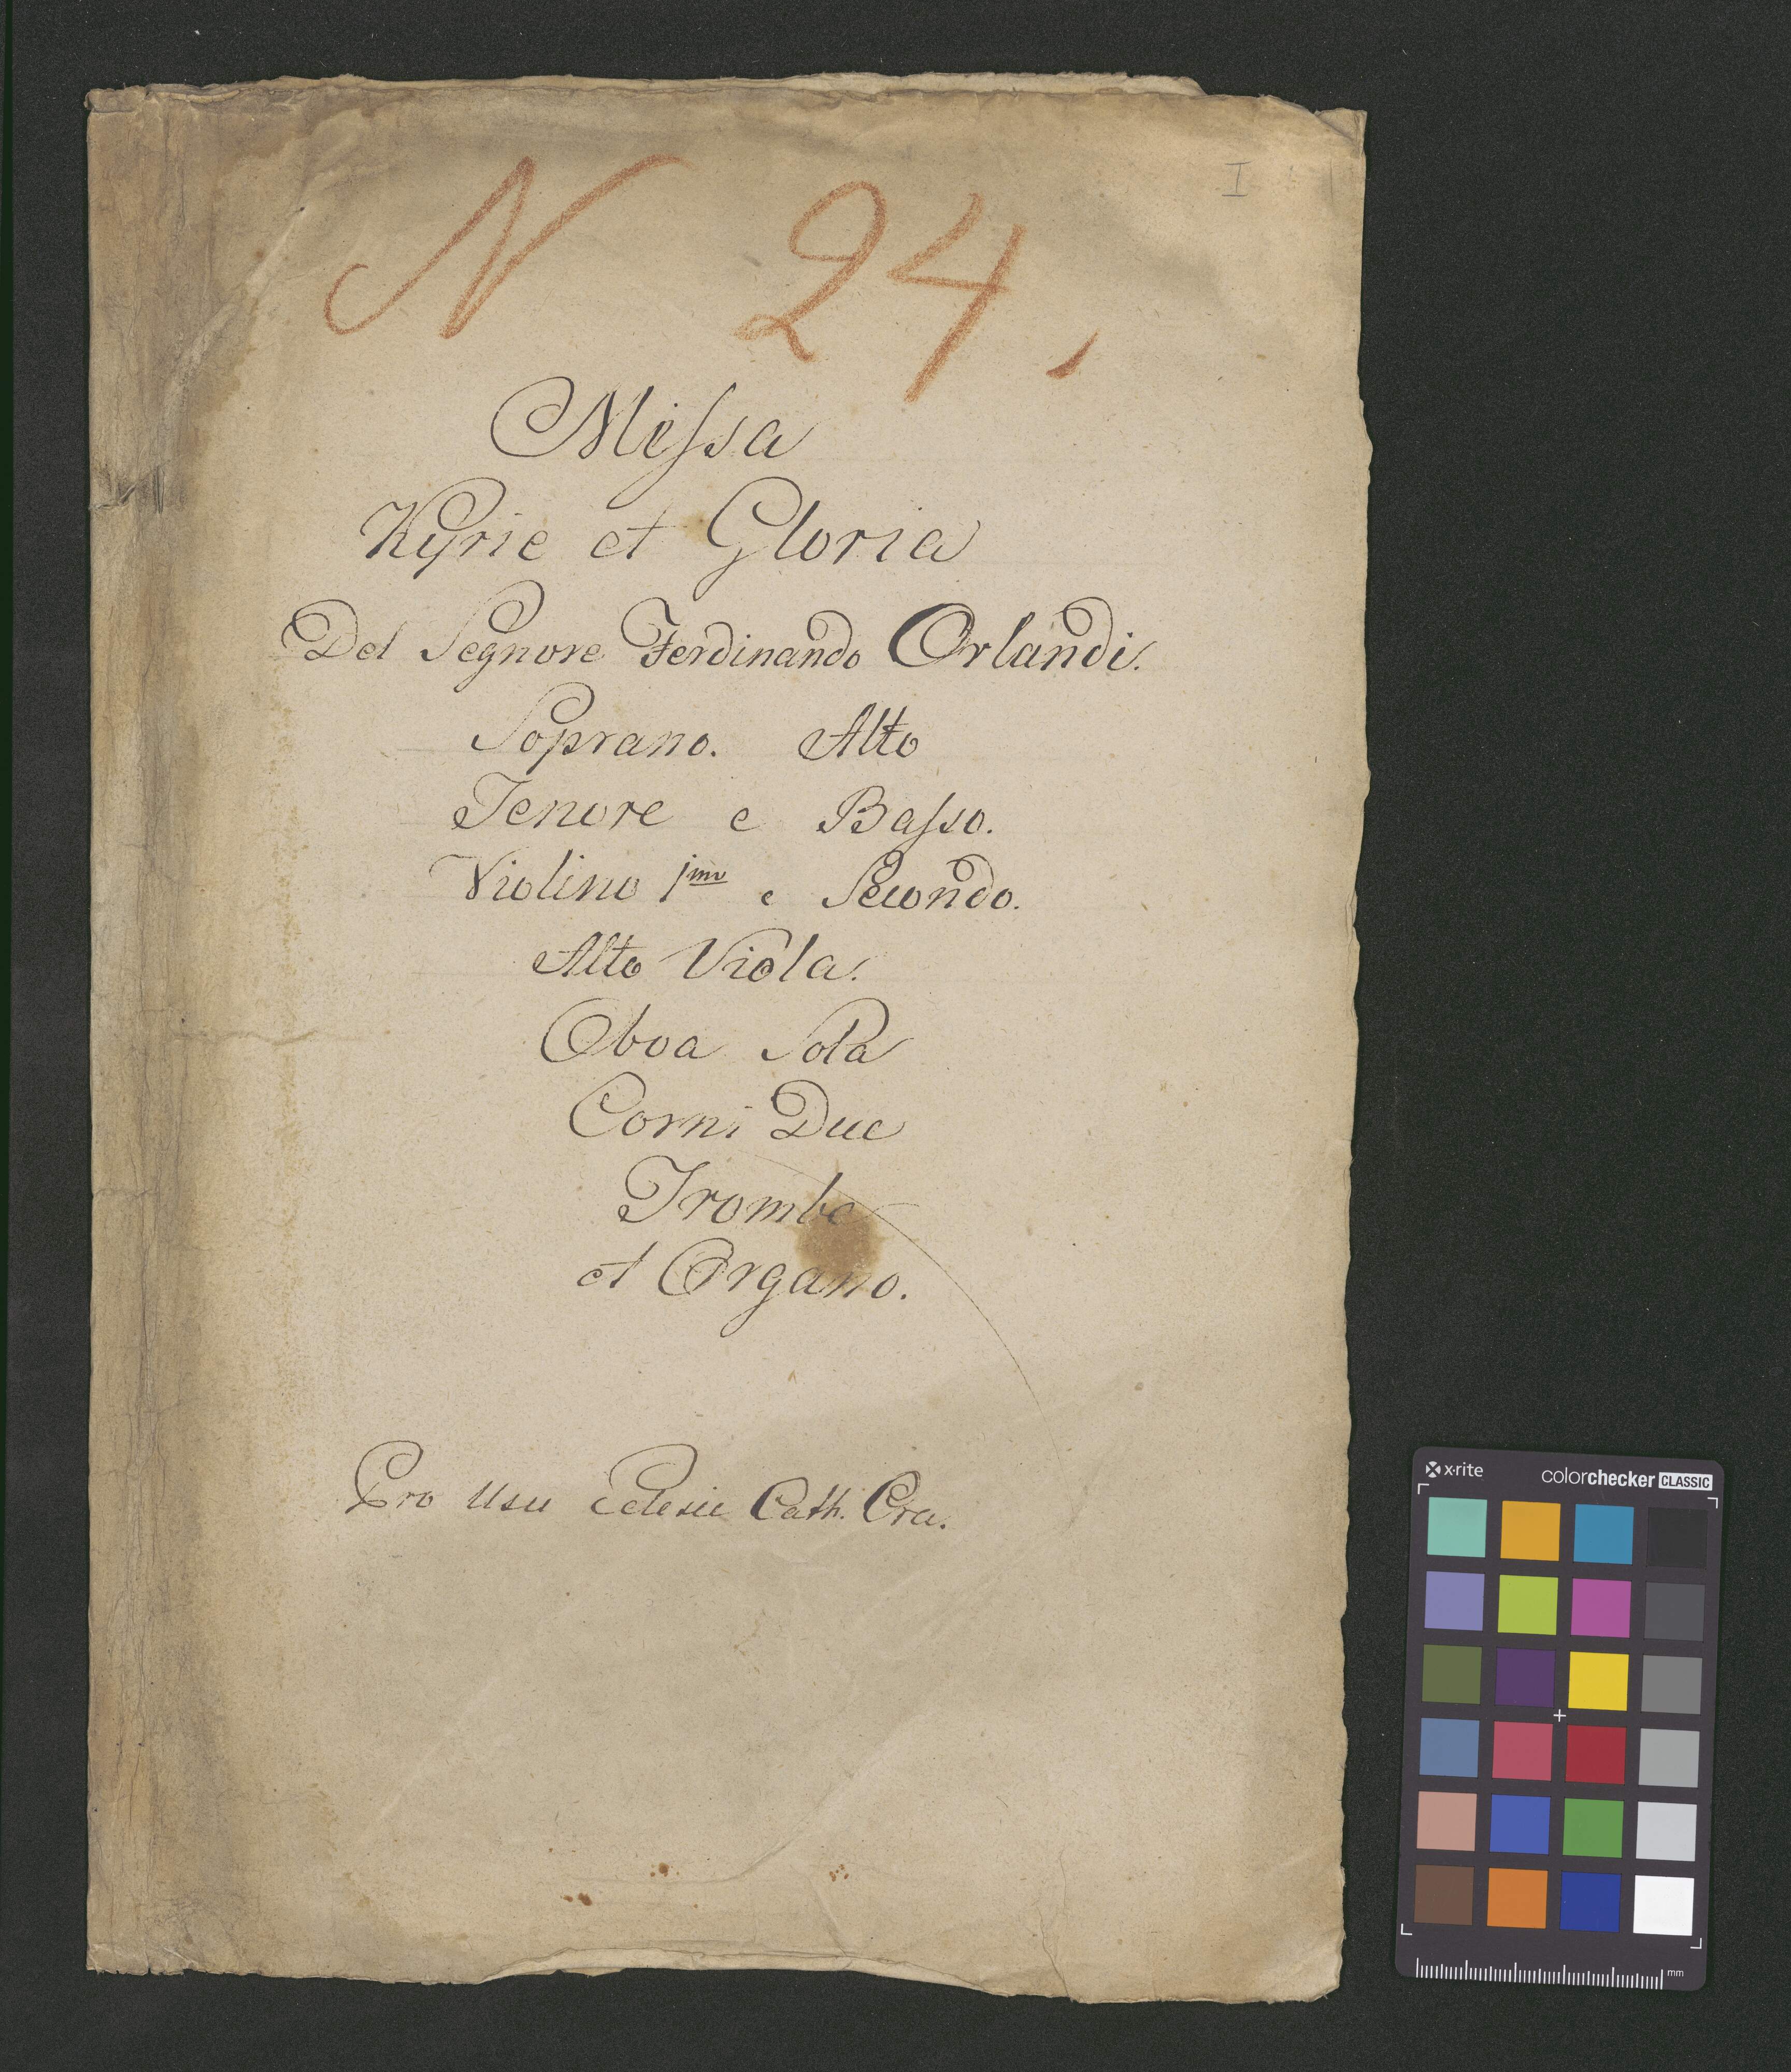 I
N 24.
Missa
Kyrie et Gloria
Del Segnore Ferdinando Orlandi.
Soprano. Alto
Tenore e Basso.
Violino 1mo e Secondo.
Alto Viola.
Oboa Sola
Corni Due
Trombe
et Organo.
Pro Usu Eclesie Cath. Cra.
x·rite colorchecker CLASSIC
mm